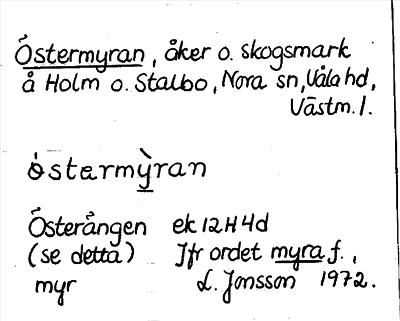 Östermyran, åker o. skogsmark
å Holm o. Stalbo, Nora sn, Våla hd,
Västm. l.
òstərmỳran
Österången ek 12H4d
(se detta) Jfr ordet myra f.,
myr L. Jonsson 1972.